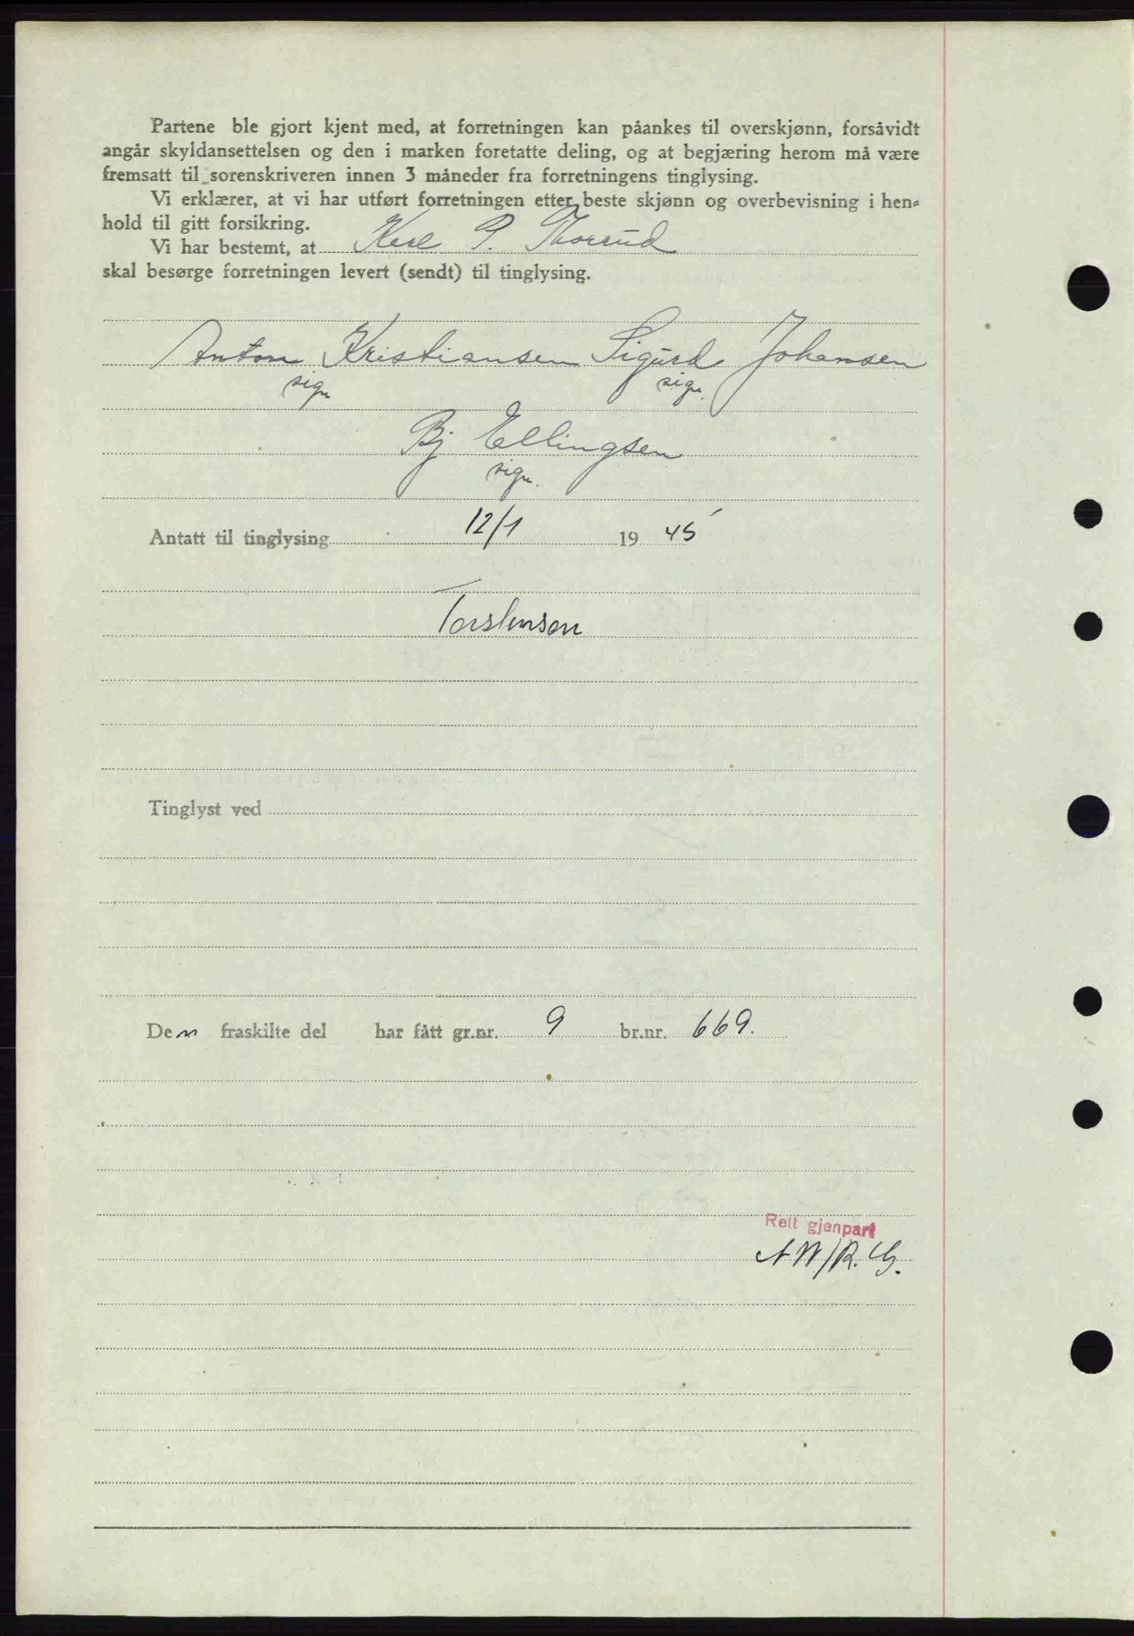 Partene ble gjort kjent med, at forretningen kan påankes til overskjønn, forsåvidt
angår skyldansettelsen og den i marken foretatte deling, og at begjæring herom må være
fremsatt til sorenskriveren innen 3 måneder fra forretningens tinglysing.
Vi erklærer, at vi har utført forretningen etter beste skjønn og overbevisning i hen-
hold til gitt forsikring.
Vi har bestemt, at P. Thorrud
skal besørge forretningen levert (sendt) til tinglysing.
Anton Kristiansen Sigurd Johansen
sign sign.
Bj Ellingsen
sign.
Antatt til tinglysing 12/1 19 45
Torstenson
Tinglyst ved
Den fraskilte del har fått gr.nr. 9 br.nr. 669.
Rett gjenpart